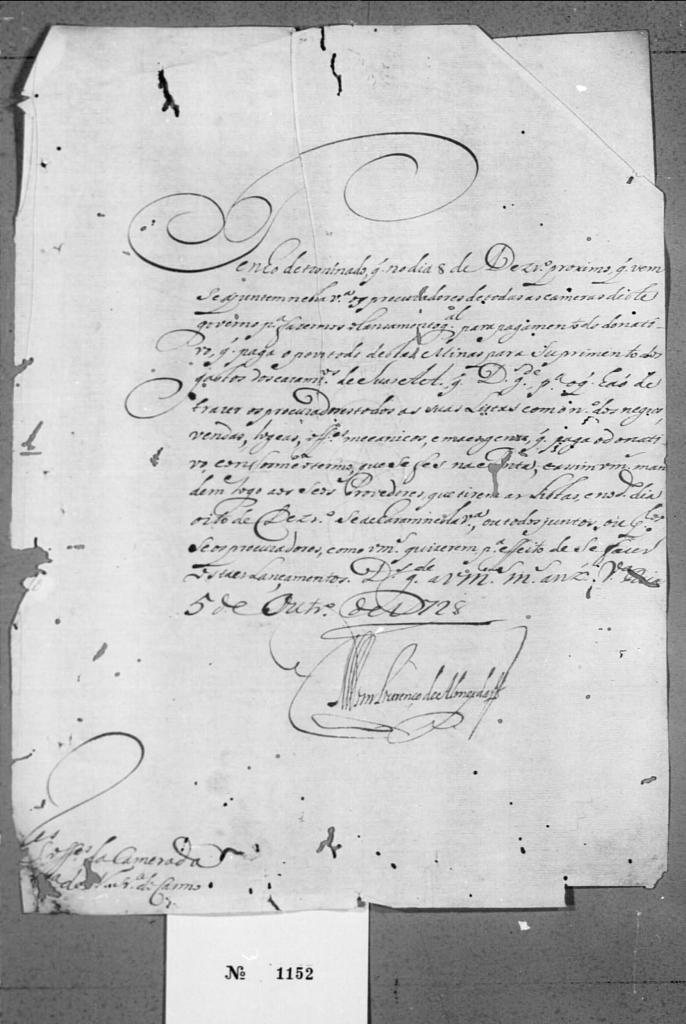 Tenho detreminado, q̃ no dia 8 de Dezrº. proximo, q̃ vem
se ajuntem nesta vª. os procuradores de todas as cameras deste
governo pª. fazermos o lancamto. para pagamento do donati
vo, q̃ paga o povo todo destas Minas para Suprimento dos
gastos dos cazamtos. de Suas Mes. q̃ Ds. gde. pª. o q̃ haõ de
trazer os procuradores todos as suas Listas com o nº. dos negros,
vendas, logeas, offes. mecanicos, e mais gente, q̃ paga o donati
vo, conforme o termo, que se fes na e assim vms. man
dem logo aos Seos Provedores, que tirem as Listas, e no dº. dia
oito de Dezrº. Se achará nesta vª., ou todos juntos, ou
Seos procuradores, como vms. quizerem pª. effeito de Se fazer
Estes Lançamentos. Ds. gde. a vms. ms. ans. Vª. Rica
5 de Outrº. de 1728
Dom Lourenço de Almeyda
offes. da Camera da
vª. de N. Srª. do Carmo
№ 1152